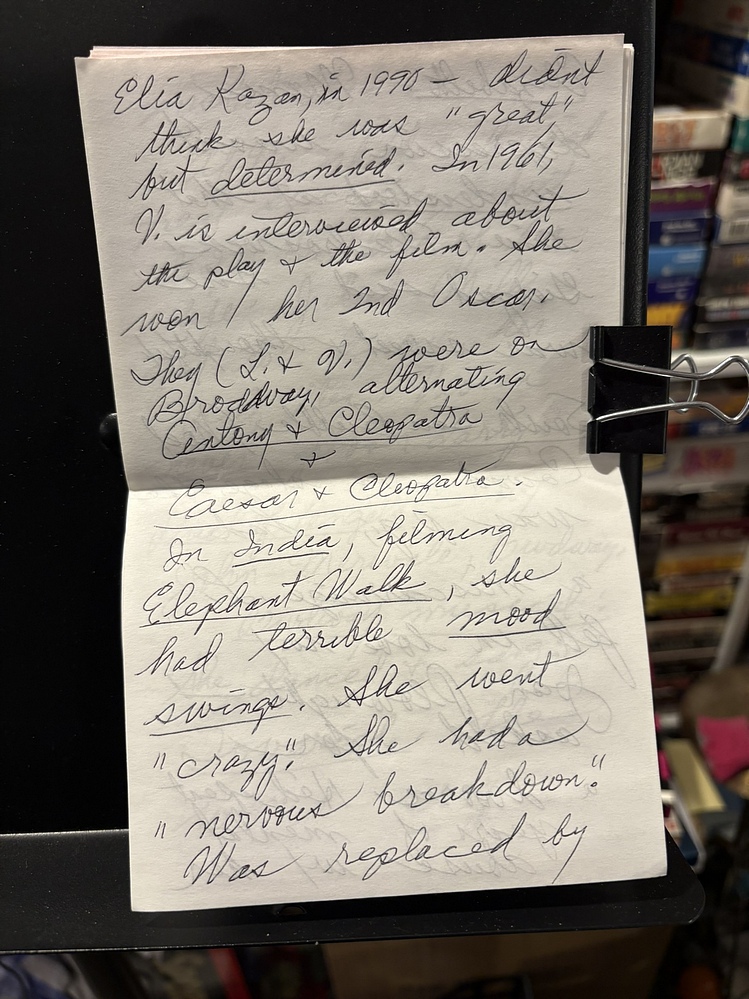 Elia Kazan, in 1990 — didn't
think she was "great,"
but determined. In 1961,
V. is interviewed about
the play & the film. She
won her 2nd Oscar.
They (L. & V.) were on
Broadway, alternating
Antony & Cleopatra
&
Caesar & Cleopatra.
In India, filming
Elephant Walk, she
had terrible mood
swings. She went
"crazy." She had a
"nervous breakdown."
Was replaced by